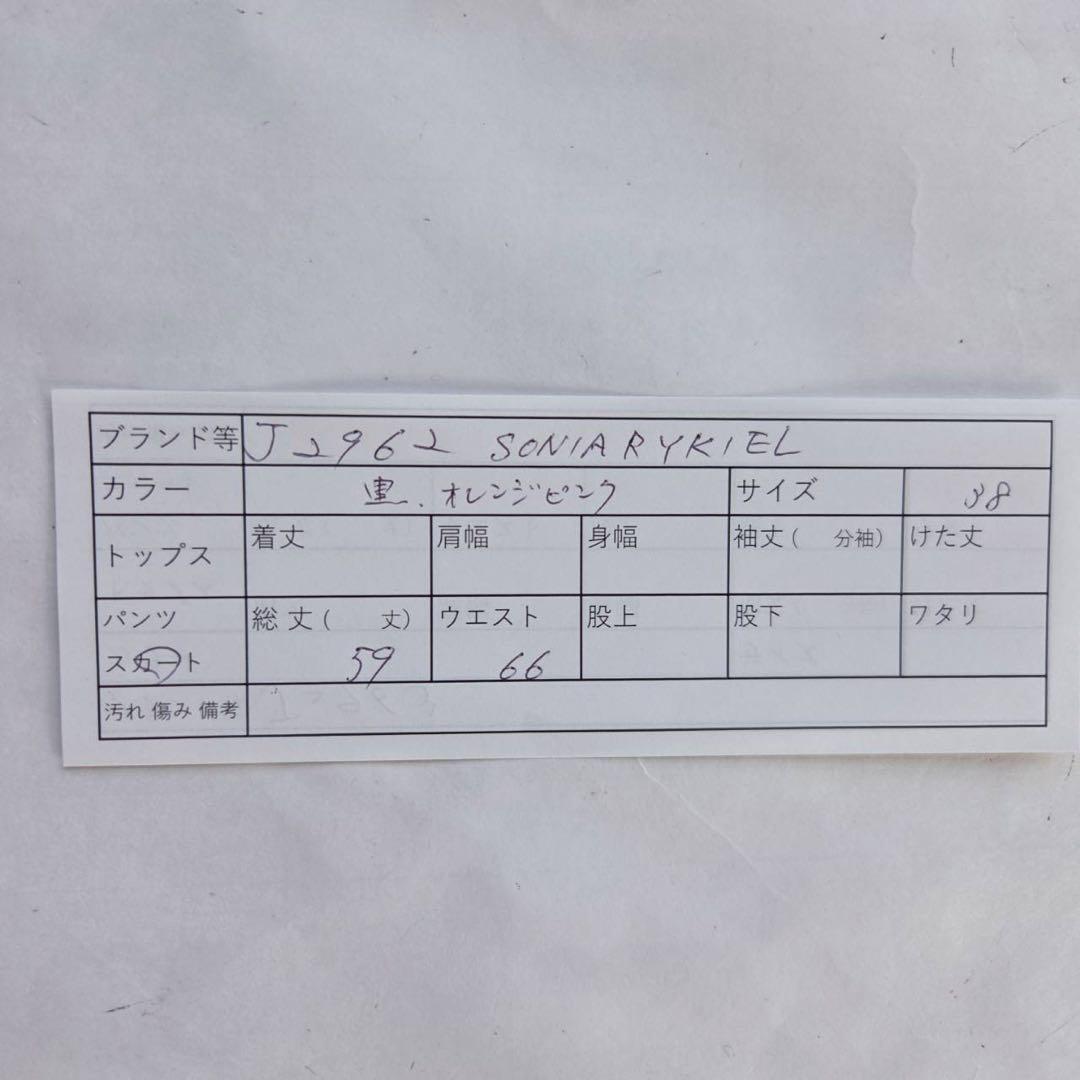 ブランド等 J2962 SONIA RYKIEL
カラー 黒、オレンジピンク サイズ 38
トップス 着丈 肩幅 身幅 袖丈( 分袖) けた丈
パンツ 総丈( 丈) ウエスト 股上 股下 ワタリ
スカート 59 66
汚れ 傷み 備考